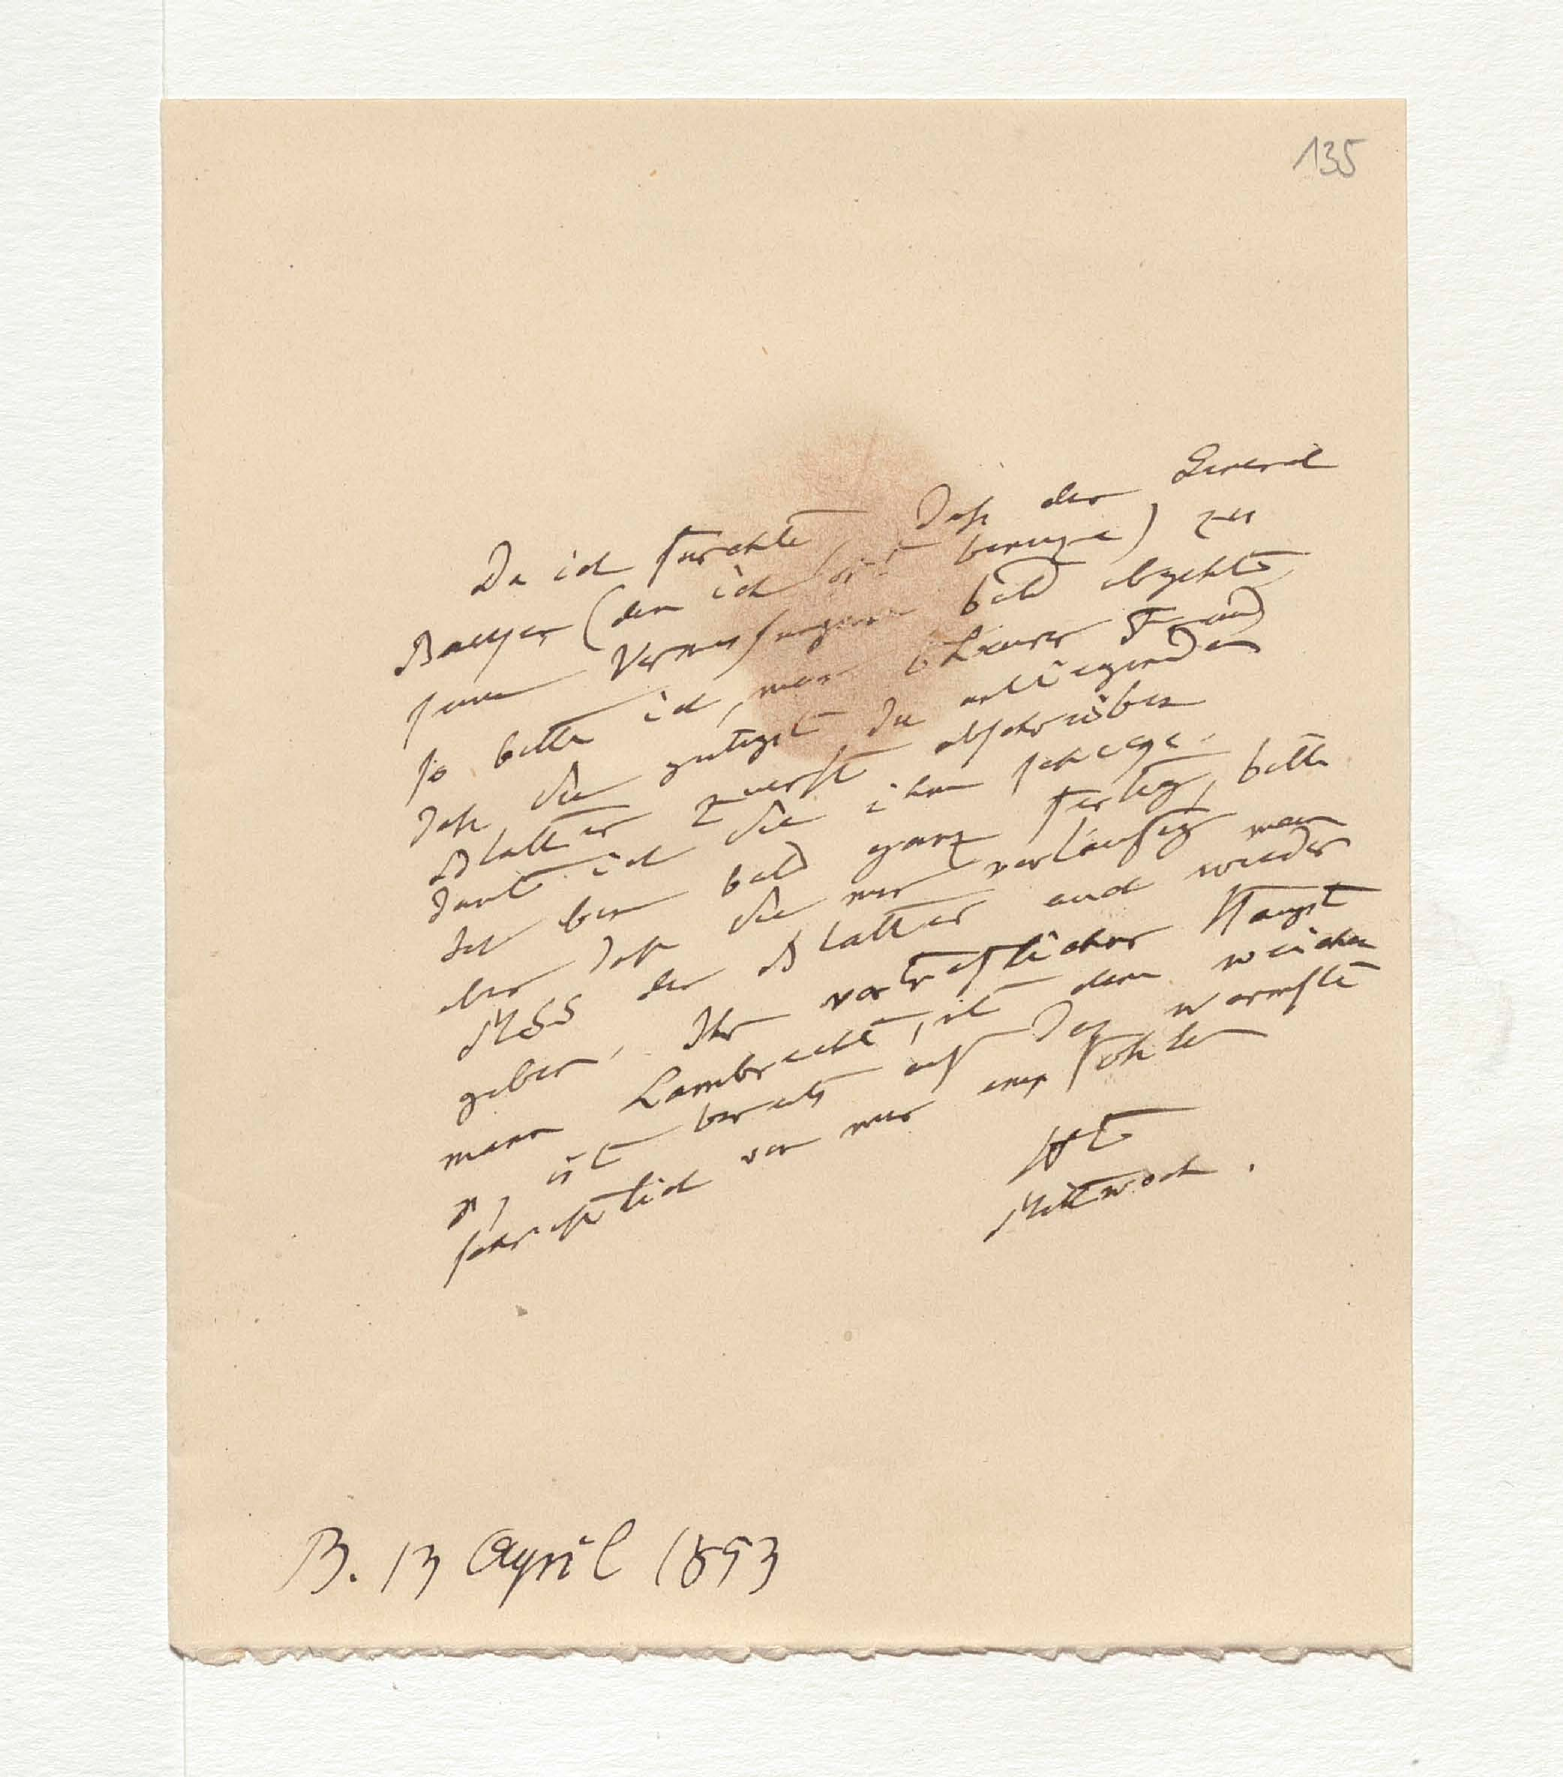 135
Da ich fürchte, daß der General
Baeyer (den ich oft benuze) zu
seinen Vermessungen bald abgehe,
so bitte ich, mein theurer Freund
daß Sie gütigst die anliegenden
Blätter zuerst abschreiben
damit ich sie ihm schicke.
Ich bin bald ganz fertig, bitte
aber daß Sie mir vorläufig mein
MSS der Blätter auch wieder
geben. Ihr vortreflicher Haupt
mann Lambrecht, mit dem weichen
p, ist bereits auf das wärmste
schriftlich von mir empfohlen
AHt
Mittwoch.
B. 13 April 1853